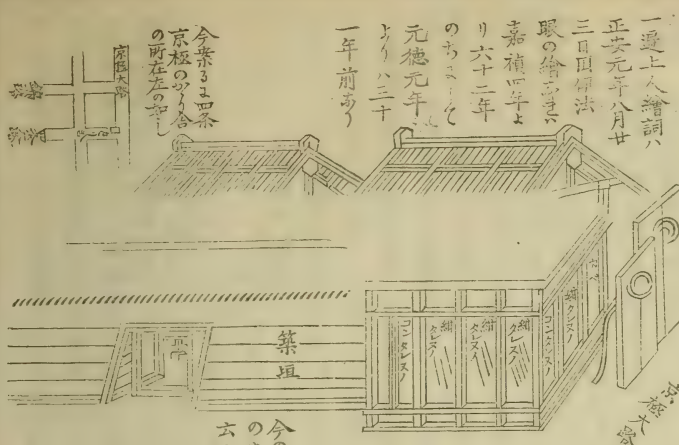 一遍上人繪詞ハ
正安元年八月廿
三日圓伊法
眼の繪なり
嘉禎四年よ
り六十二年
のちにて
元徳元年
より八三十
一年前なり
今案るに四条
京極のかり合
の所在左の如し
京極大路
築垣
コンタレスノ
紺タレスノ
紺タレスノ
紺タレスノ
コンタレスノ
紺タレスノ
京極大路
今の
六